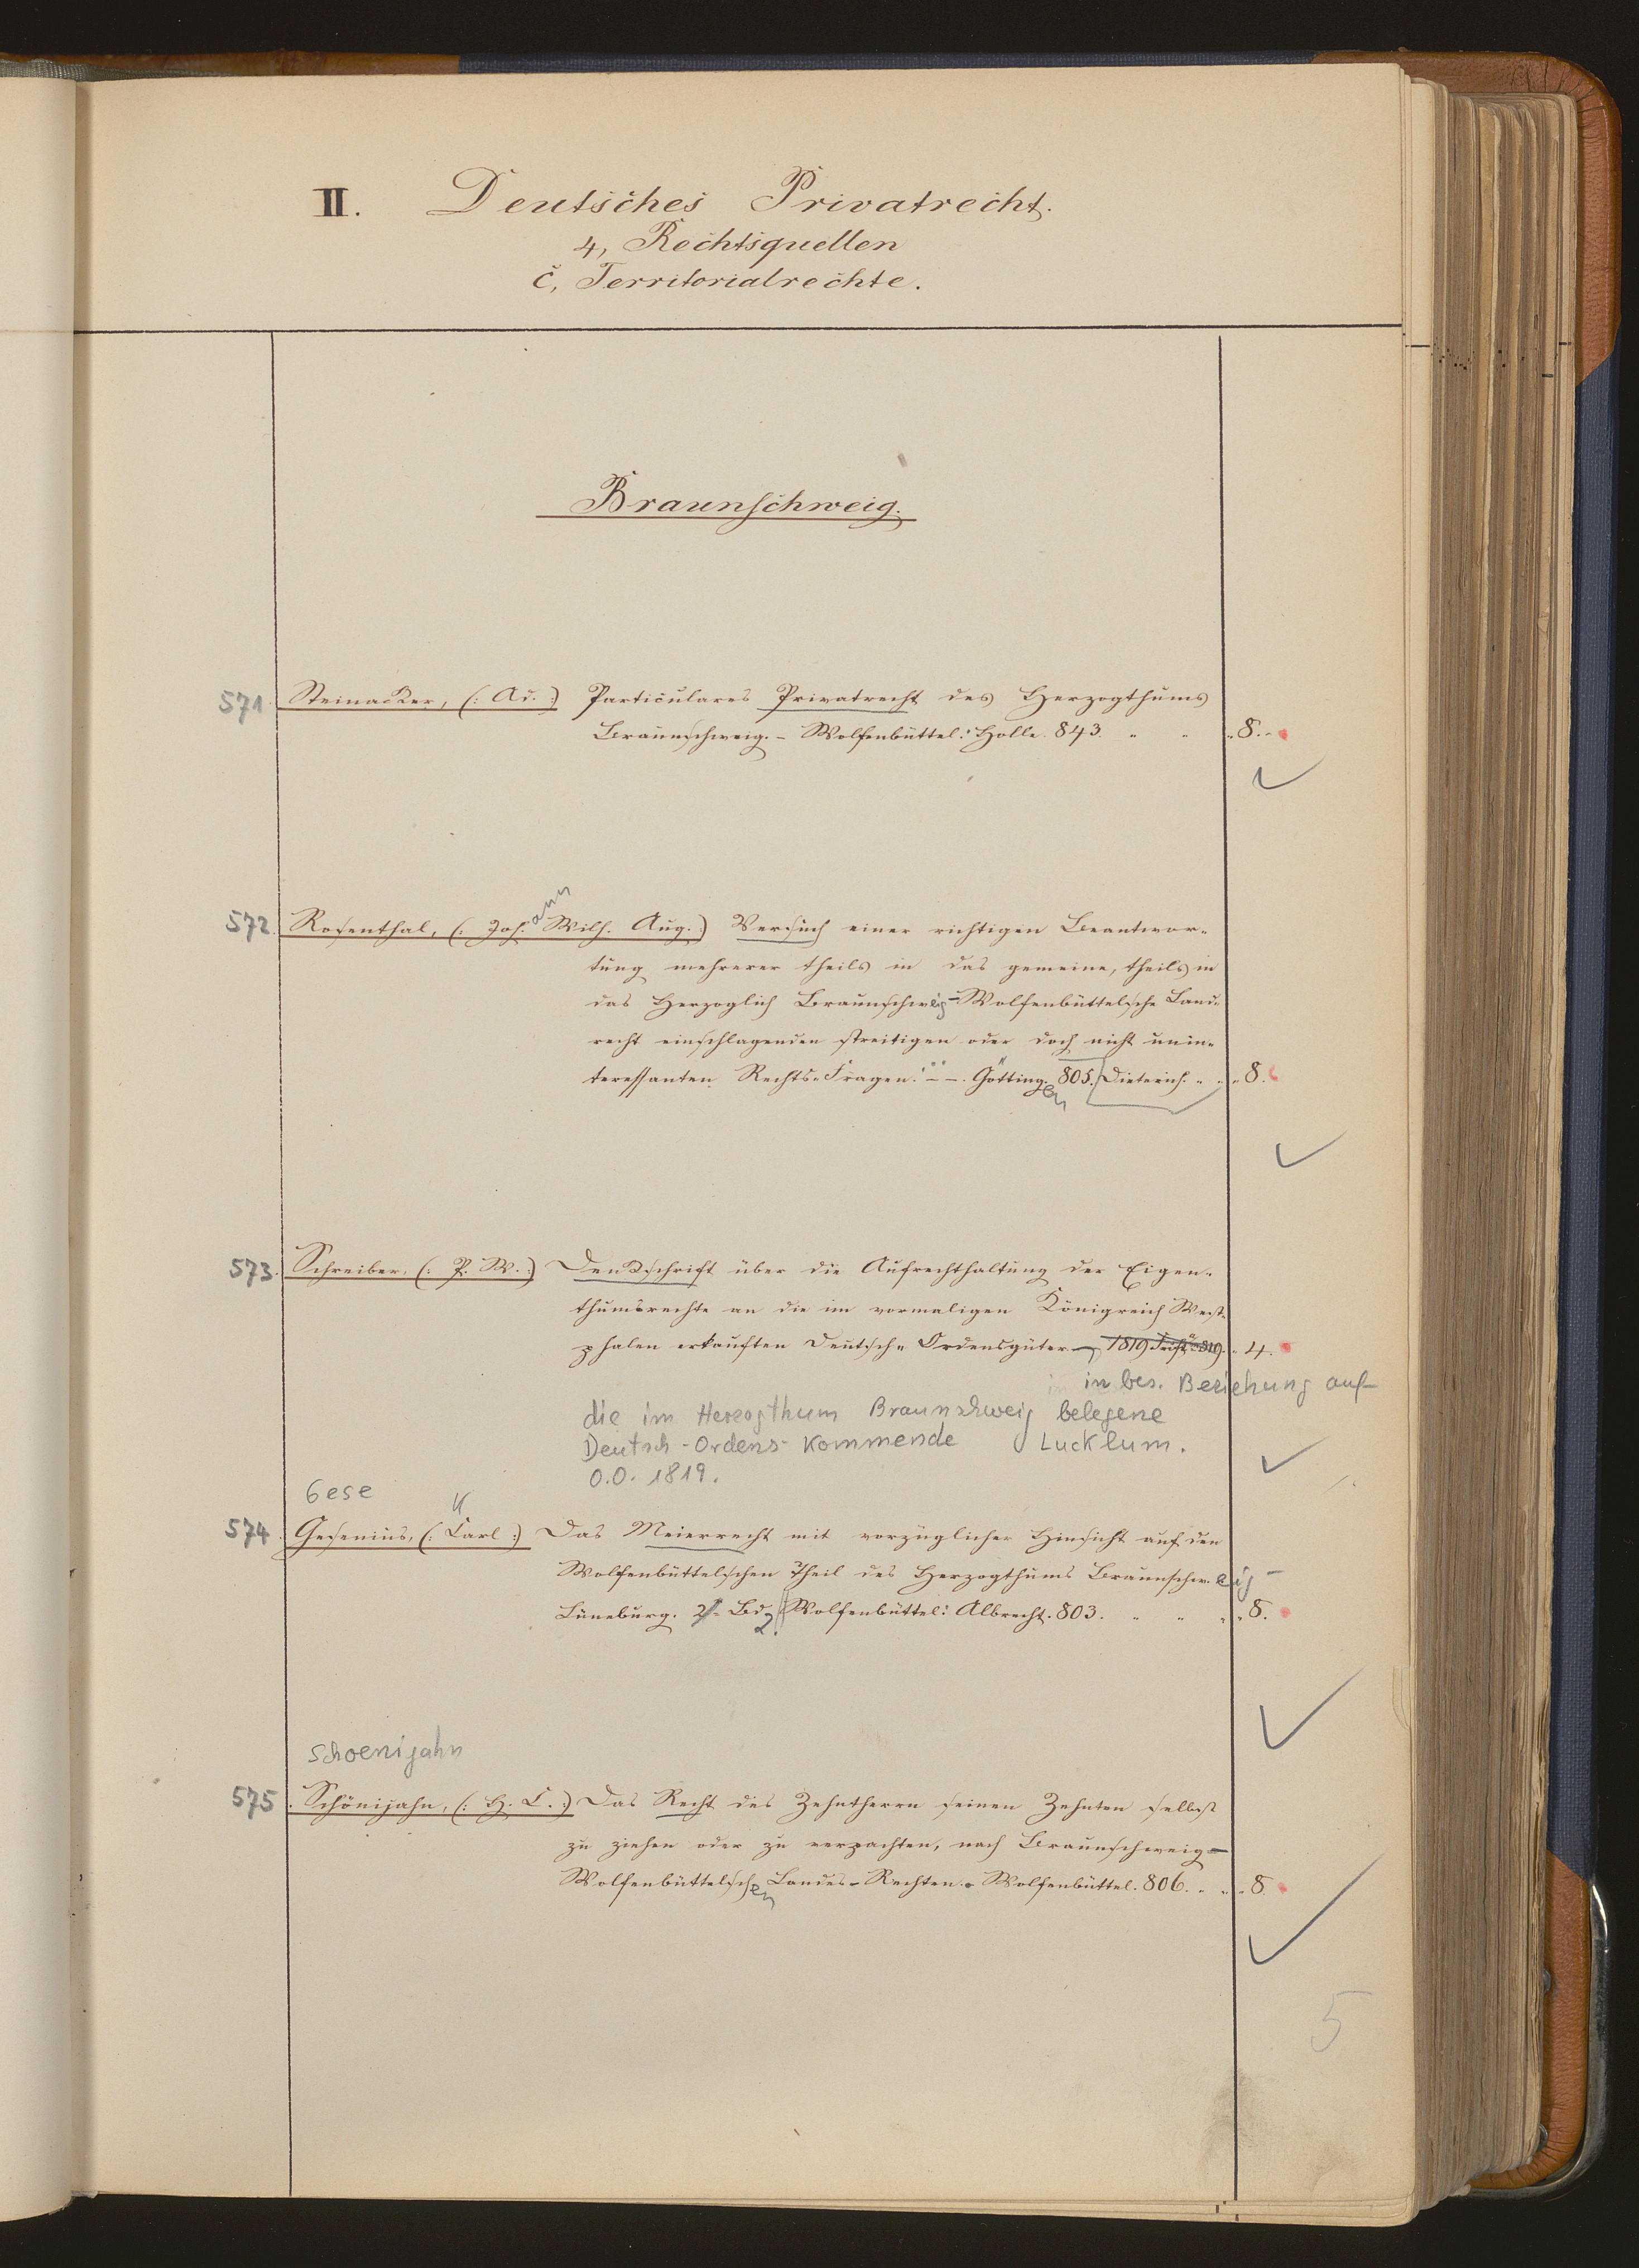 II. Deutsches Privatrecht.
4, Rechtsquellen
c, Territorialrechte.
Braunschweig.
571 Steinacker, (: Ad. :) Particulares Privatrecht des Herzogthums
Braunschweig. – Wolfenbüttel: Holle. 843. " " " 8. -
ann
572. Rosenthal, (: Joh. Wilh. Aug. :) Versuch einer richtigen Beantwor-
tung mehrerer theils in das gemeine, theils in
das Herzoglich Braunschweig-Wolfenbüttelsche Land-
recht einschlagenden streitigen oder doch nicht unin-
teressanten Rechts-Fragen. – Götting. 805. Dieterich. " " " 8.
en
573. Schreiber, (: P. W. :) Denkschrift über die Aufrechthaltung der Eigen-
thumsrechte an die im vormaligen Königreich West-
phalen erkauften Deutsch-Ordensgüter – 1819 819. " 4.
in bes. Beziehung auf
die im Herzogthum Braunschweig belegene
Deutsch-Ordens-Kommende Lucklum.
O.O. 1819.
Gese
K
574. Gesenius, (: Carl :) Das Meierrecht mit vorzüglicher Hinsicht auf den
Wolfenbüttelschen Theil des Herzogthums Braunschw. eig-
Lüneburg. 2 Bd. Wolfenbüttel: Albrecht. 803. " " " 8.
2.
Schoenijahn
575. Schönijahn, (: H. C. :) Das Recht des Zehntherrn seinen Zehnten selbst
zu ziehen oder zu verpachten, nach Braunschweig-
Wolfenbüttelschen Landes-Rechten. Wolfenbüttel. 806. " " " 8.
5